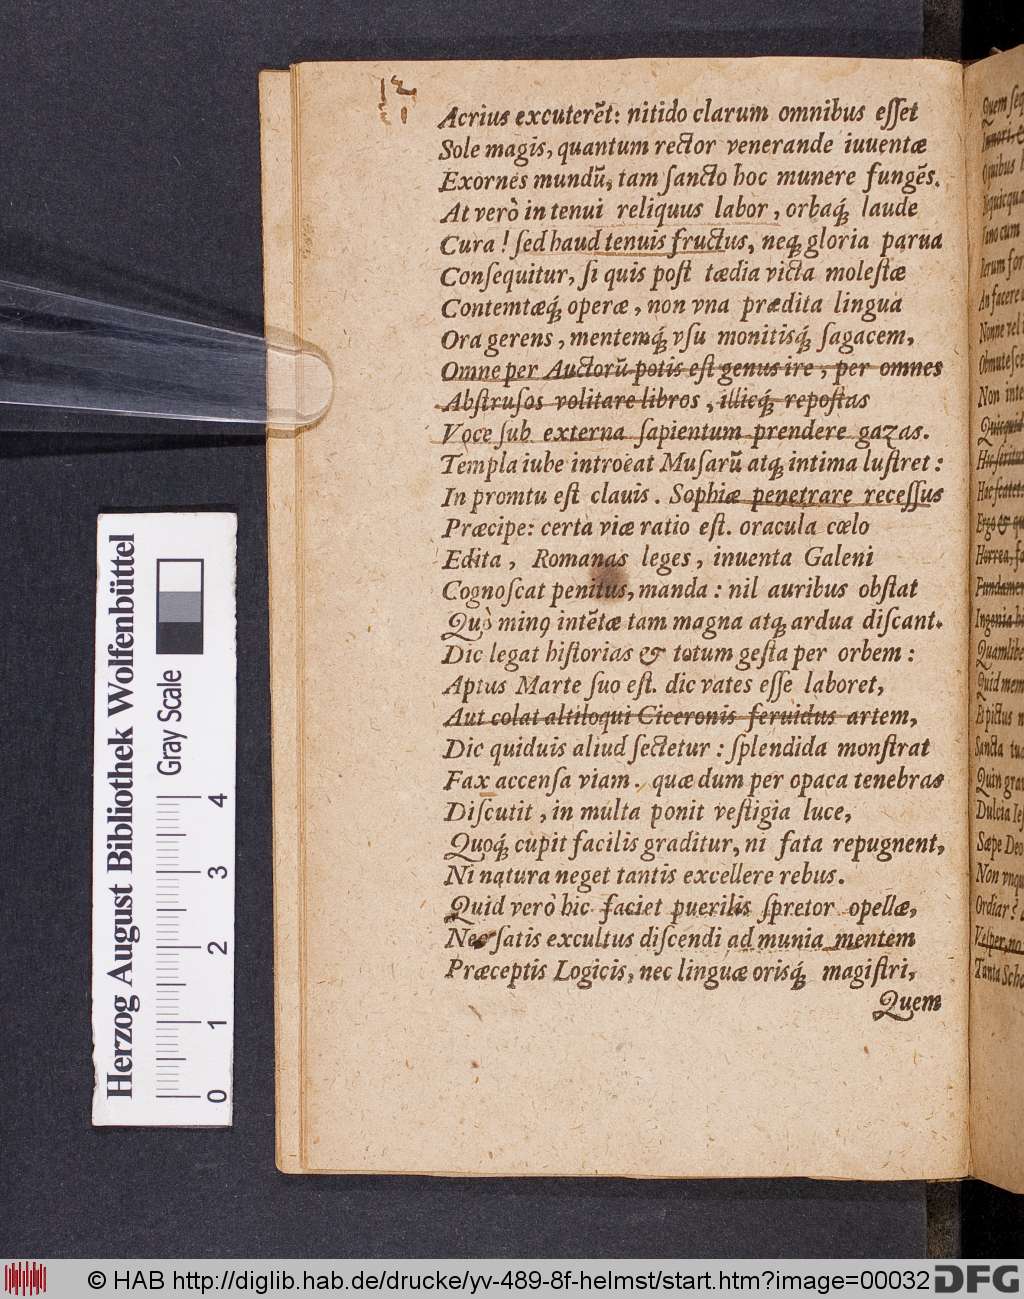 12
Acrius excuterẽt: nitido clarum omnibus eſſet
Sole magis, quantum rector venerande iuuentæ
Exornes mundũ, tam ſancto hoc munere fungẽs.
At verò in tenui reliquus labor, orbaq́; laude
Cura! ſed haud tenuis fructus, neq; gloria parua
Conſequitur, ſi quis poſt tædia victa moleſtæ
Contemtæq́; operæ, non vna prædita lingua
Ora gerens, mentemq́; vſu monitisq́; ſagacem,
Omne per Auctorũ potis eſt genus ire, per omnes
Abſtruſos volitare libros, illicq́; repoſtas
Voce ſub externa ſapientum prendere gazas.
Templa iube introëat Muſarũ atq; intima luſtret:
In promtu eſt clauis. Sophiæ penetrare receſſus
Præcipe: certa viæ ratio eſt. oracula cœlo
Edita, Romanas leges, inuenta Galeni
Cognoſcat penitus, manda: nil auribus obſtat
Quò minꝰ intẽtæ tam magna atq; ardua diſcant.
Dic legat hiſtorias & totum geſta per orbem:
Aptus Marte ſuo eſt. dic vates eſſe laboret,
Aut colat altiloqui Ciceronis feruidus artem,
Dic quiduis aliud ſectetur: ſplendida monſtrat
Fax accenſa viam. quæ dum per opaca tenebras
Diſcutit, in multa ponit veſtigia luce,
Quoq́; cupit facilis graditur, ni fata repugnent,
Ni natura neget tantis excellere rebus.
Quid verò hic faciet puerilis ſpretor opellæ,
Nec ſatis excultus diſcendi ad munia mentem
Præceptis Logicis, nec linguæ orisq́; magiſtri,
Quem
Herzog August Bibliothek Wolfenbüttel
Gray Scale
0 1 2 3 4
© HAB http://diglib.hab.de/drucke/yv-489-8f-helmst/start.htm?image=00032
DFG